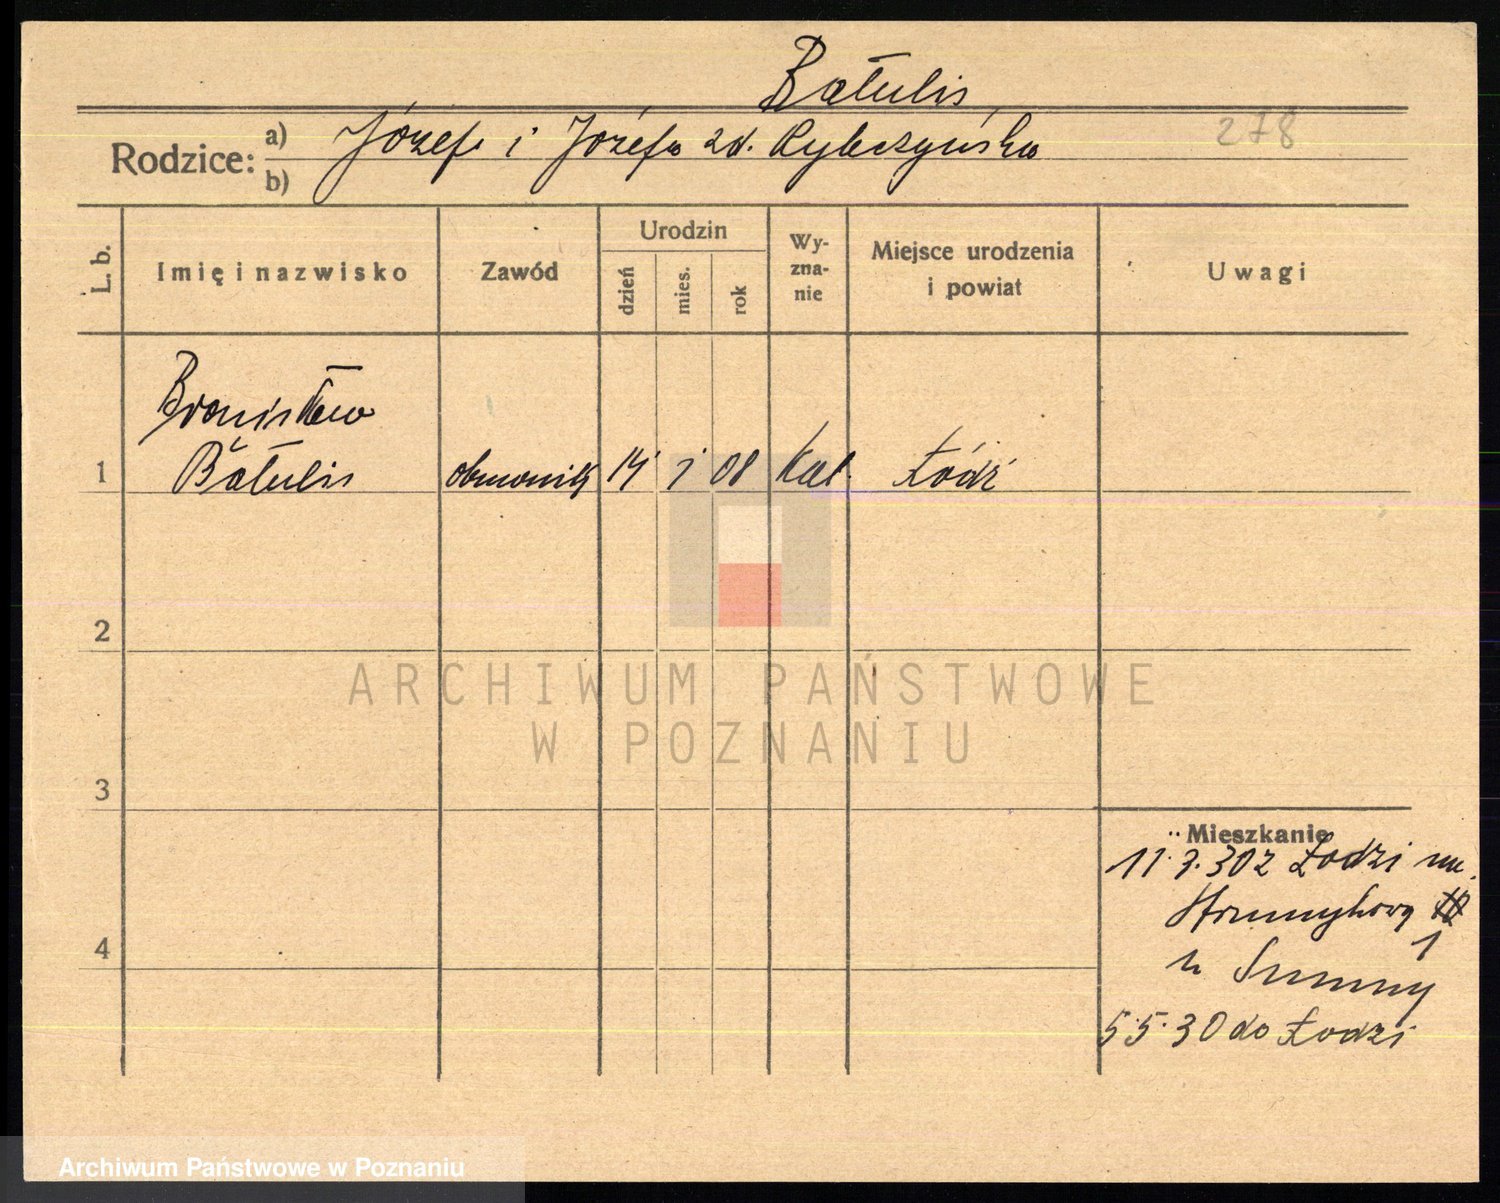 Batulis
278
Rodzice: a) Józef i Józefa zd. Rybczyńska
b)
L. b.
Imię i nazwisko
Zawód
Urodzin
dzień
mies.
rok
Wy-
zna-
nie
Miejsce urodzenia
i powiat
Uwagi
Bronisław
1 Batulis
14 1 08 Kat. Łódź
2
ARCHIWUM PAŃSTWOWE
W POZNANIU
3
Mieszkanie
11.3.30 z Łodzi na
4
1
u
5.5.30 do Łodzi
Archiwum Państwowe w Poznaniu